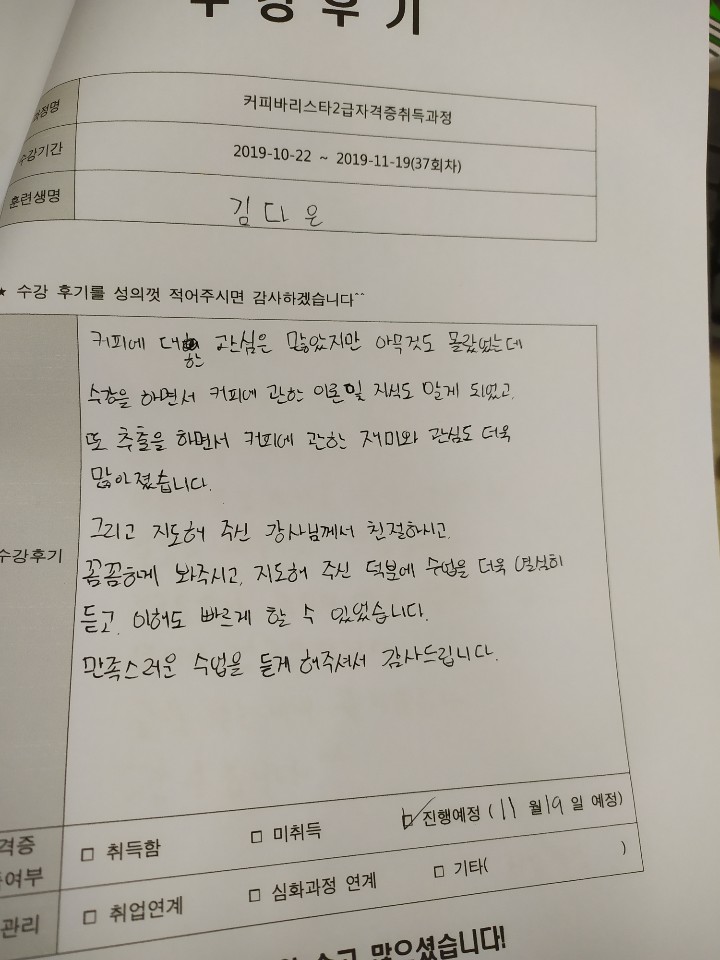 수강후기
과정명 커피바리스타2급자격증취득과정
수강기간 2019-10-22 ~ 2019-11-19(37회차)
훈련생명 김다은
★ 수강 후기를 성의껏 적어주시면 감사하겠습니다^^
수강후기
커피에 대한 관심은 많았지만 아무것도 몰랐었는데
수강을 하면서 커피에 관한 이론및 지식도 알게 되었고,
또 추출을 하면서 커피에 관한 재미와 관심도 더욱
많아졌습니다.
그리고 지도해 주신 강사님께서 친절하시고,
꼼꼼하게 봐주시고, 지도해 주신 덕분에 수업을 더욱 열심히
듣고, 이해도 빠르게 할 수 있었습니다.
만족스러운 수업을 듣게 해주셔서 감사드립니다.
격증
여부 □ 취득함 □ 미취득 ☑ 진행예정 ( 11 월 19 일 예정)
관리 □ 취업연계 □ 심화과정 연계 □ 기타( )
수고 많으셨습니다!